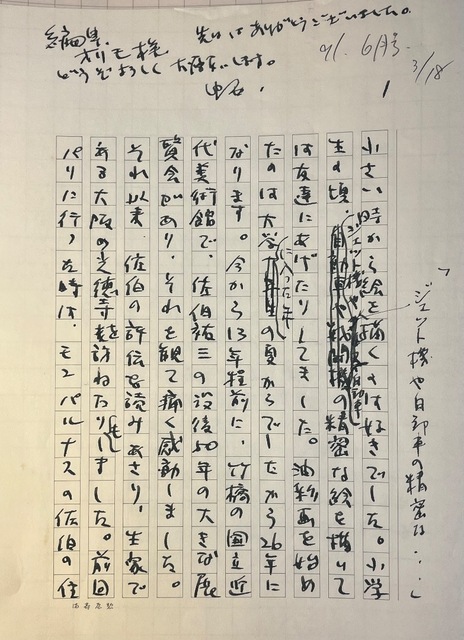 編集.
オリモ様 先日はありがとうございました。
どうぞよろしくお願いします。
'91. 6月号.
3/18
1
「ジェット機や自動車の精密な・・・」
小さい時から絵を描くのは好きでした。小学
生の頃、ジェット機や自動車の精密な絵を描いて
は友達にあげたりしてました。油彩画を始め
たのは大学に入った年の夏からでしたから26年に
なります。今から13年程前に、竹橋の国立近
代美術館で、佐伯祐三の没後50年の大きな展
覧会があり、それを観て痛く感動しました。
それ以来、佐伯の評伝を読みあさり、生家で
ある大阪の光徳寺を訪ねたりもしました。前回
パリに行った時は、モンパルナスの佐伯の住